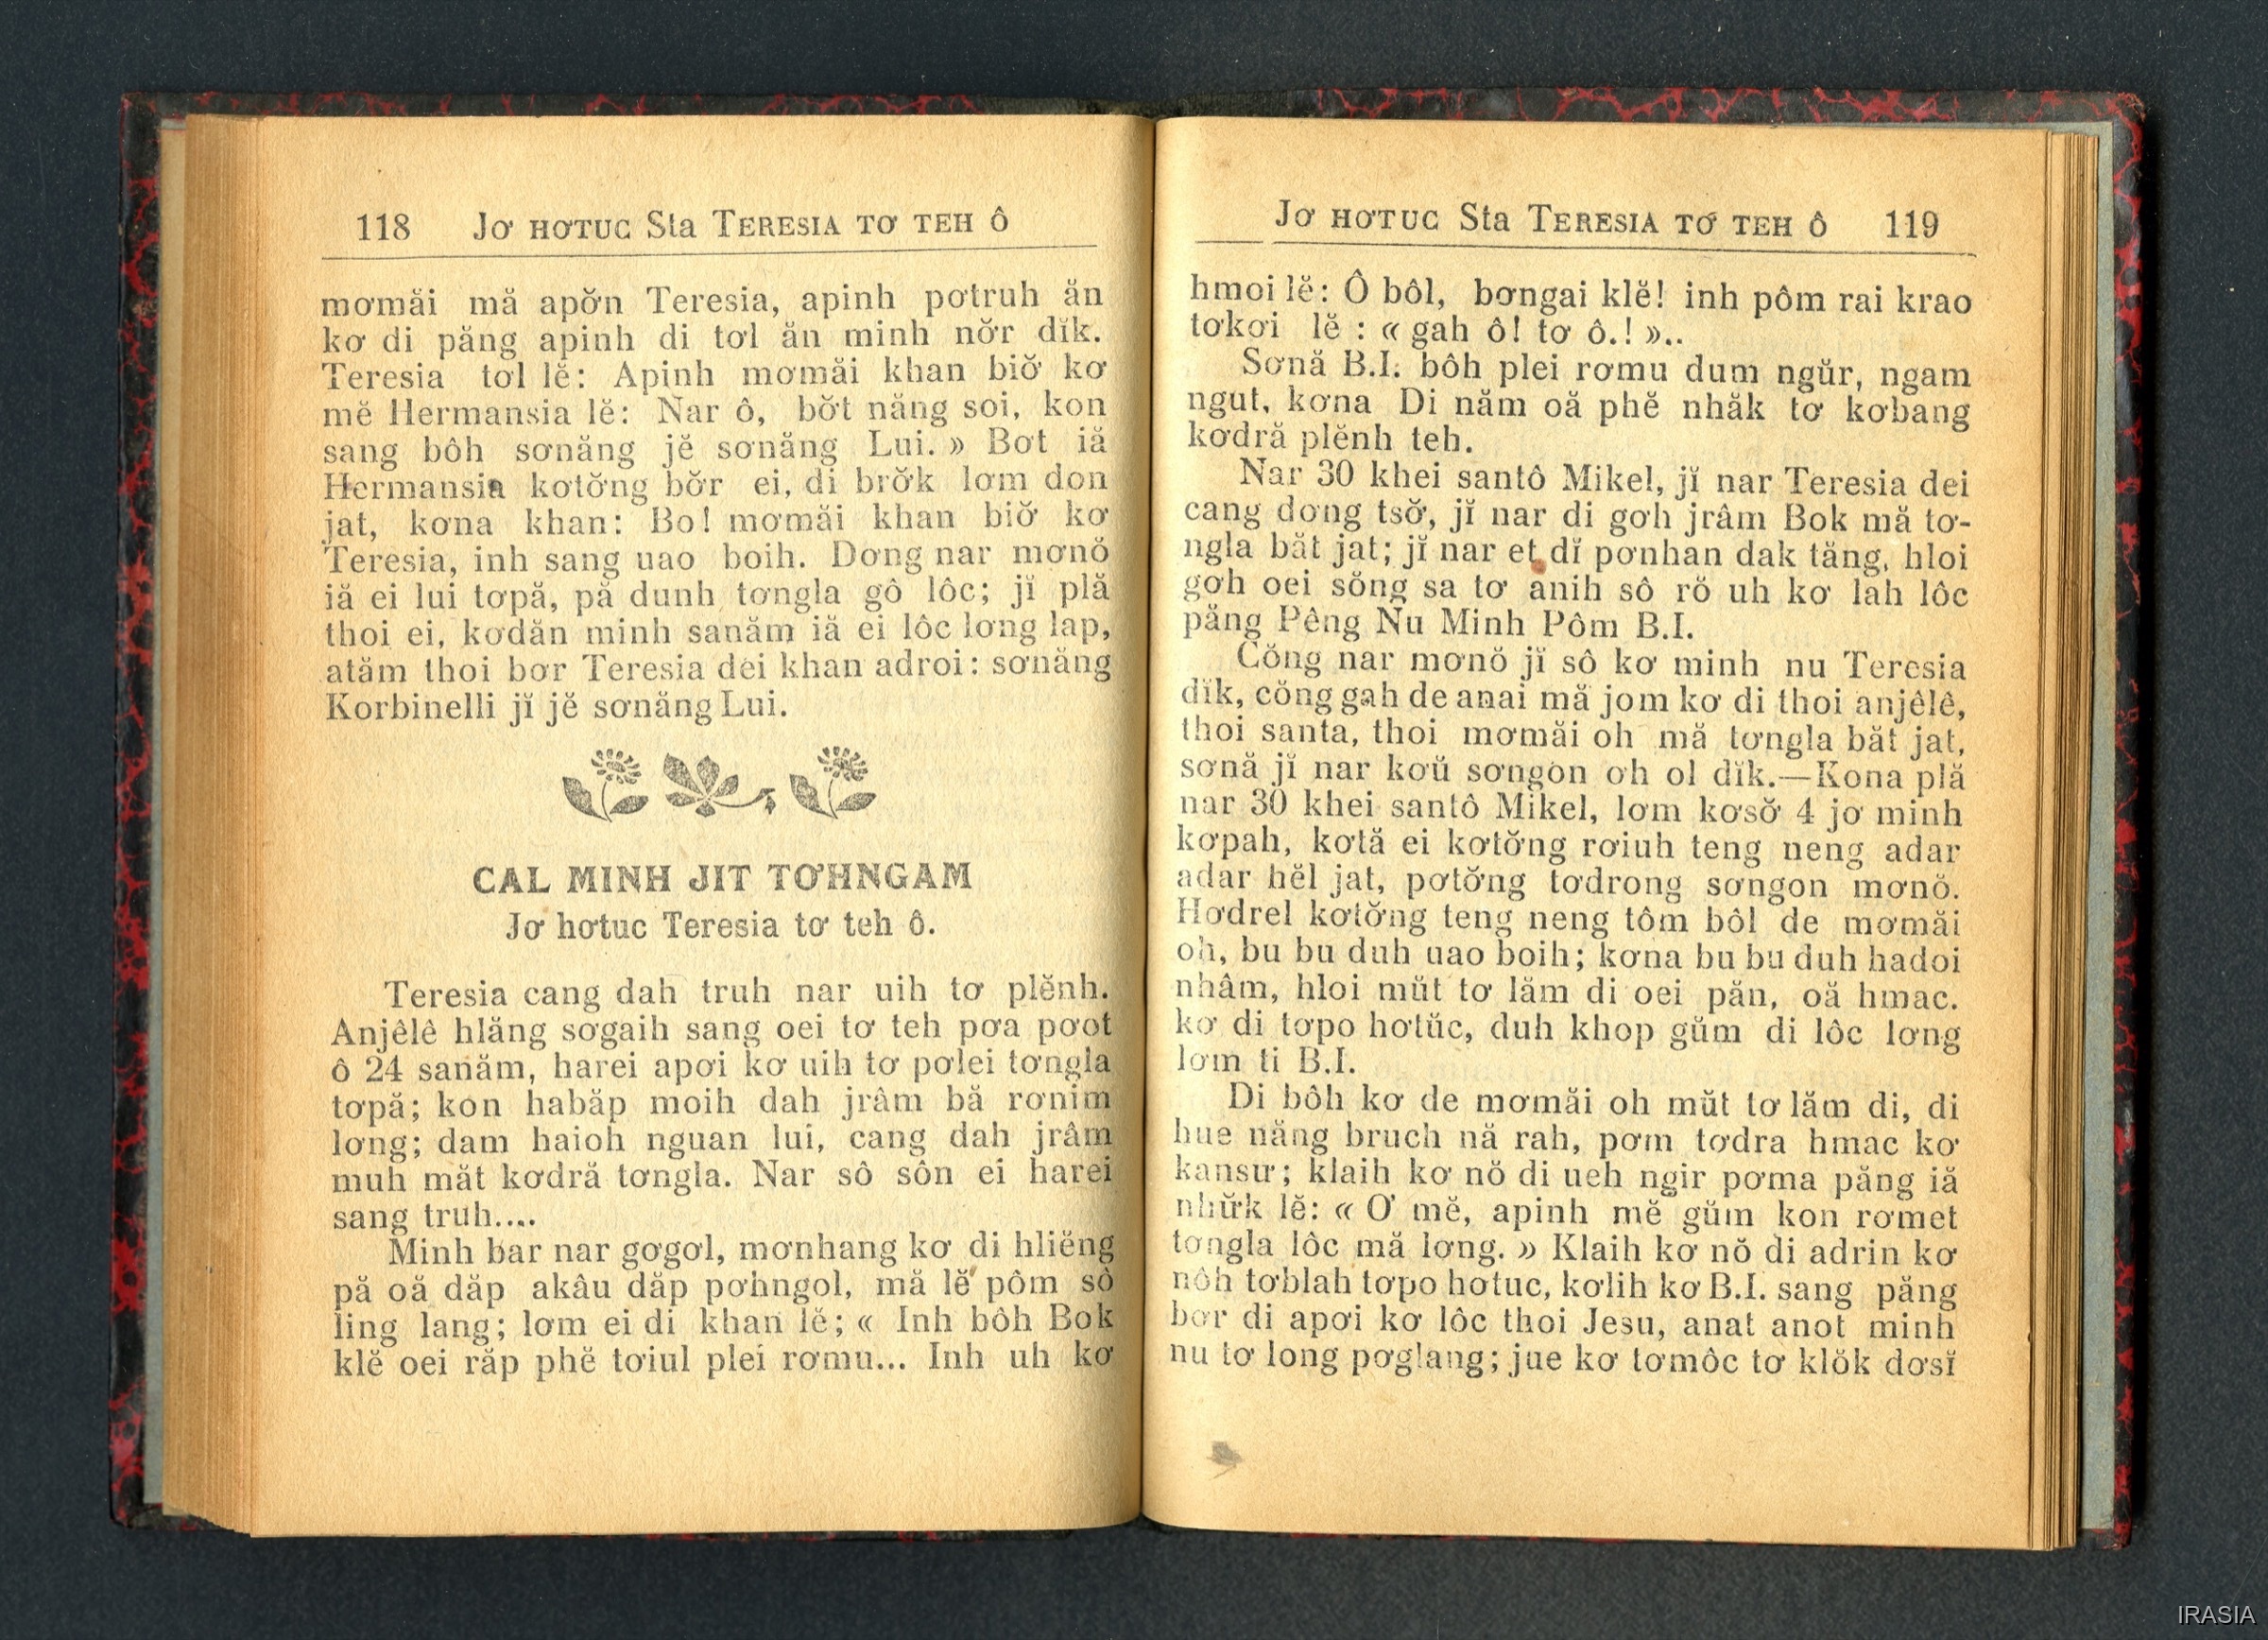 118 Jơ hơtuc Sta Teresia tơ teh ô
mơmăi mă apơ̆n Teresia, apinh pơtruh ăn
kơ di păng apinh di tơl ăn minh nơ̆r dĭk.
Teresia tơl lĕ: Apinh mơmăi khan biơ̆ kơ
mĕ Hermansia lĕ: Nar ô, bơ̆t năng soi, kon
sang bôh sơnăng jĕ sơnăng Lui. » Bơt iă
Hermansia kơtơ̆ng bơ̆r ei, di brơ̆k lơm don
jat, kơna khan: Bo! mơmăi khan biơ̆ kơ
Teresia, inh sang uao boih. Dơng nar mơnŏ
iă ei lui tơpă, pă dunh tơngla gô lôc; jĭ plă
thoi ei, kơdăn minh sanăm iă ei lôc lơng lap,
atăm thoi bơr Teresia dei khan adroi: sơnăng
Korbinelli jĭ jĕ sơnăng Lui.
CAL MINH JIT TƠHNGAM
Jơ hơtuc Teresia tơ teh ô.
Teresia cang dah truh nar uih tơ plĕnh.
Anjêlê hlăng sơgaih sang oei tơ teh pơa pơot
ô 24 sanăm, harei apơi kơ uih tơ pơlei tơngla
tơpă; kon habăp moih dah jrâm bă rơnim
lơng; dam haioh nguan lui, cang dah jrâm
muh măt kơdră tơngla. Nar sô sôn ei harei
sang truh....
Minh bar nar gơgơl, mơnhang kơ di hliĕng
pă oă dăp akâu dăp pơhngol, mă lĕ pôm sô
ling lang; lơm ei di khan lĕ; « Inh bôh Bok
klĕ oei răp phĕ tơiul plei rơmu... Inh uh kơ
Jơ hơtuc Sta Teresia tơ teh ô 119
hmoi lĕ: Ô bôl, bơngai klĕ! inh pôm rai krao
tơkơi lĕ : « gah ô! tơ ô.! »..
Sơnă B.I. bôh plei rơmu dum ngŭr, ngam
ngut, kơna Di năm oă phĕ nhăk tơ kơbang
kơdră plĕnh teh.
Nar 30 khei santô Mikel, jĭ nar Teresia dei
cang dơng tsơ̆, jĭ nar di gơh jrâm Bok mă tơ-
ngla băt jat; jĭ nar et dĭ pơnhan dak tăng, hloi
gơh oei sŏng sa tơ anih sô rŏ uh kơ lah lôc
păng Pêng Nu Minh Pôm B.I.
Cŏng nar mơnŏ jĭ sô kơ minh nu Teresia
dĭk, cŏng gah de anai mă jom kơ di thoi anjêlê,
thoi santa, thoi mơmăi oh mă tơngla băt jat,
sơnă jĭ nar kơŭ sơngon ơh ol dĭk.—Kona plă
nar 30 khei santô Mikel, lơm kơsơ̆ 4 jơ minh
kơpah, kơtă ei kơtơ̆ng rơiuh teng neng adar
adar hĕl jat, pơtơ̆ng tơdrong sơngon mơnŏ.
Hơdrel kơtơ̆ng teng neng tôm bôl de mơmăi
oh, bu bu duh uao boih; kơna bu bu duh hadoi
nhâm, hloi mŭt tơ lăm di oei păn, oă hmac.
kơ di tơpo hơtŭc, duh khop gŭm di lôc lơng
lơm ti B.I.
Di bôh kơ de mơmăi oh mŭt tơ lăm di, di
hue năng bruch nă rah, pơm tơdra hmac kơ
kansư; klaih kơ nŏ di ueh ngir pơma păng iă
như̆k lĕ: « Ơ mĕ, apinh mĕ gŭm kon rơmet
tơngla lôc mă lơng. » Klaih kơ nŏ di adrin kơ
nôh tơblah tơpo hơtuc, kơlih kơ B.I. sang păng
bơr di apơi kơ lôc thoi Jesu, anat anot minh
nu tơ long pơglang; jue kơ tơmôc tơ klŏk dơsĭ
IRASIA